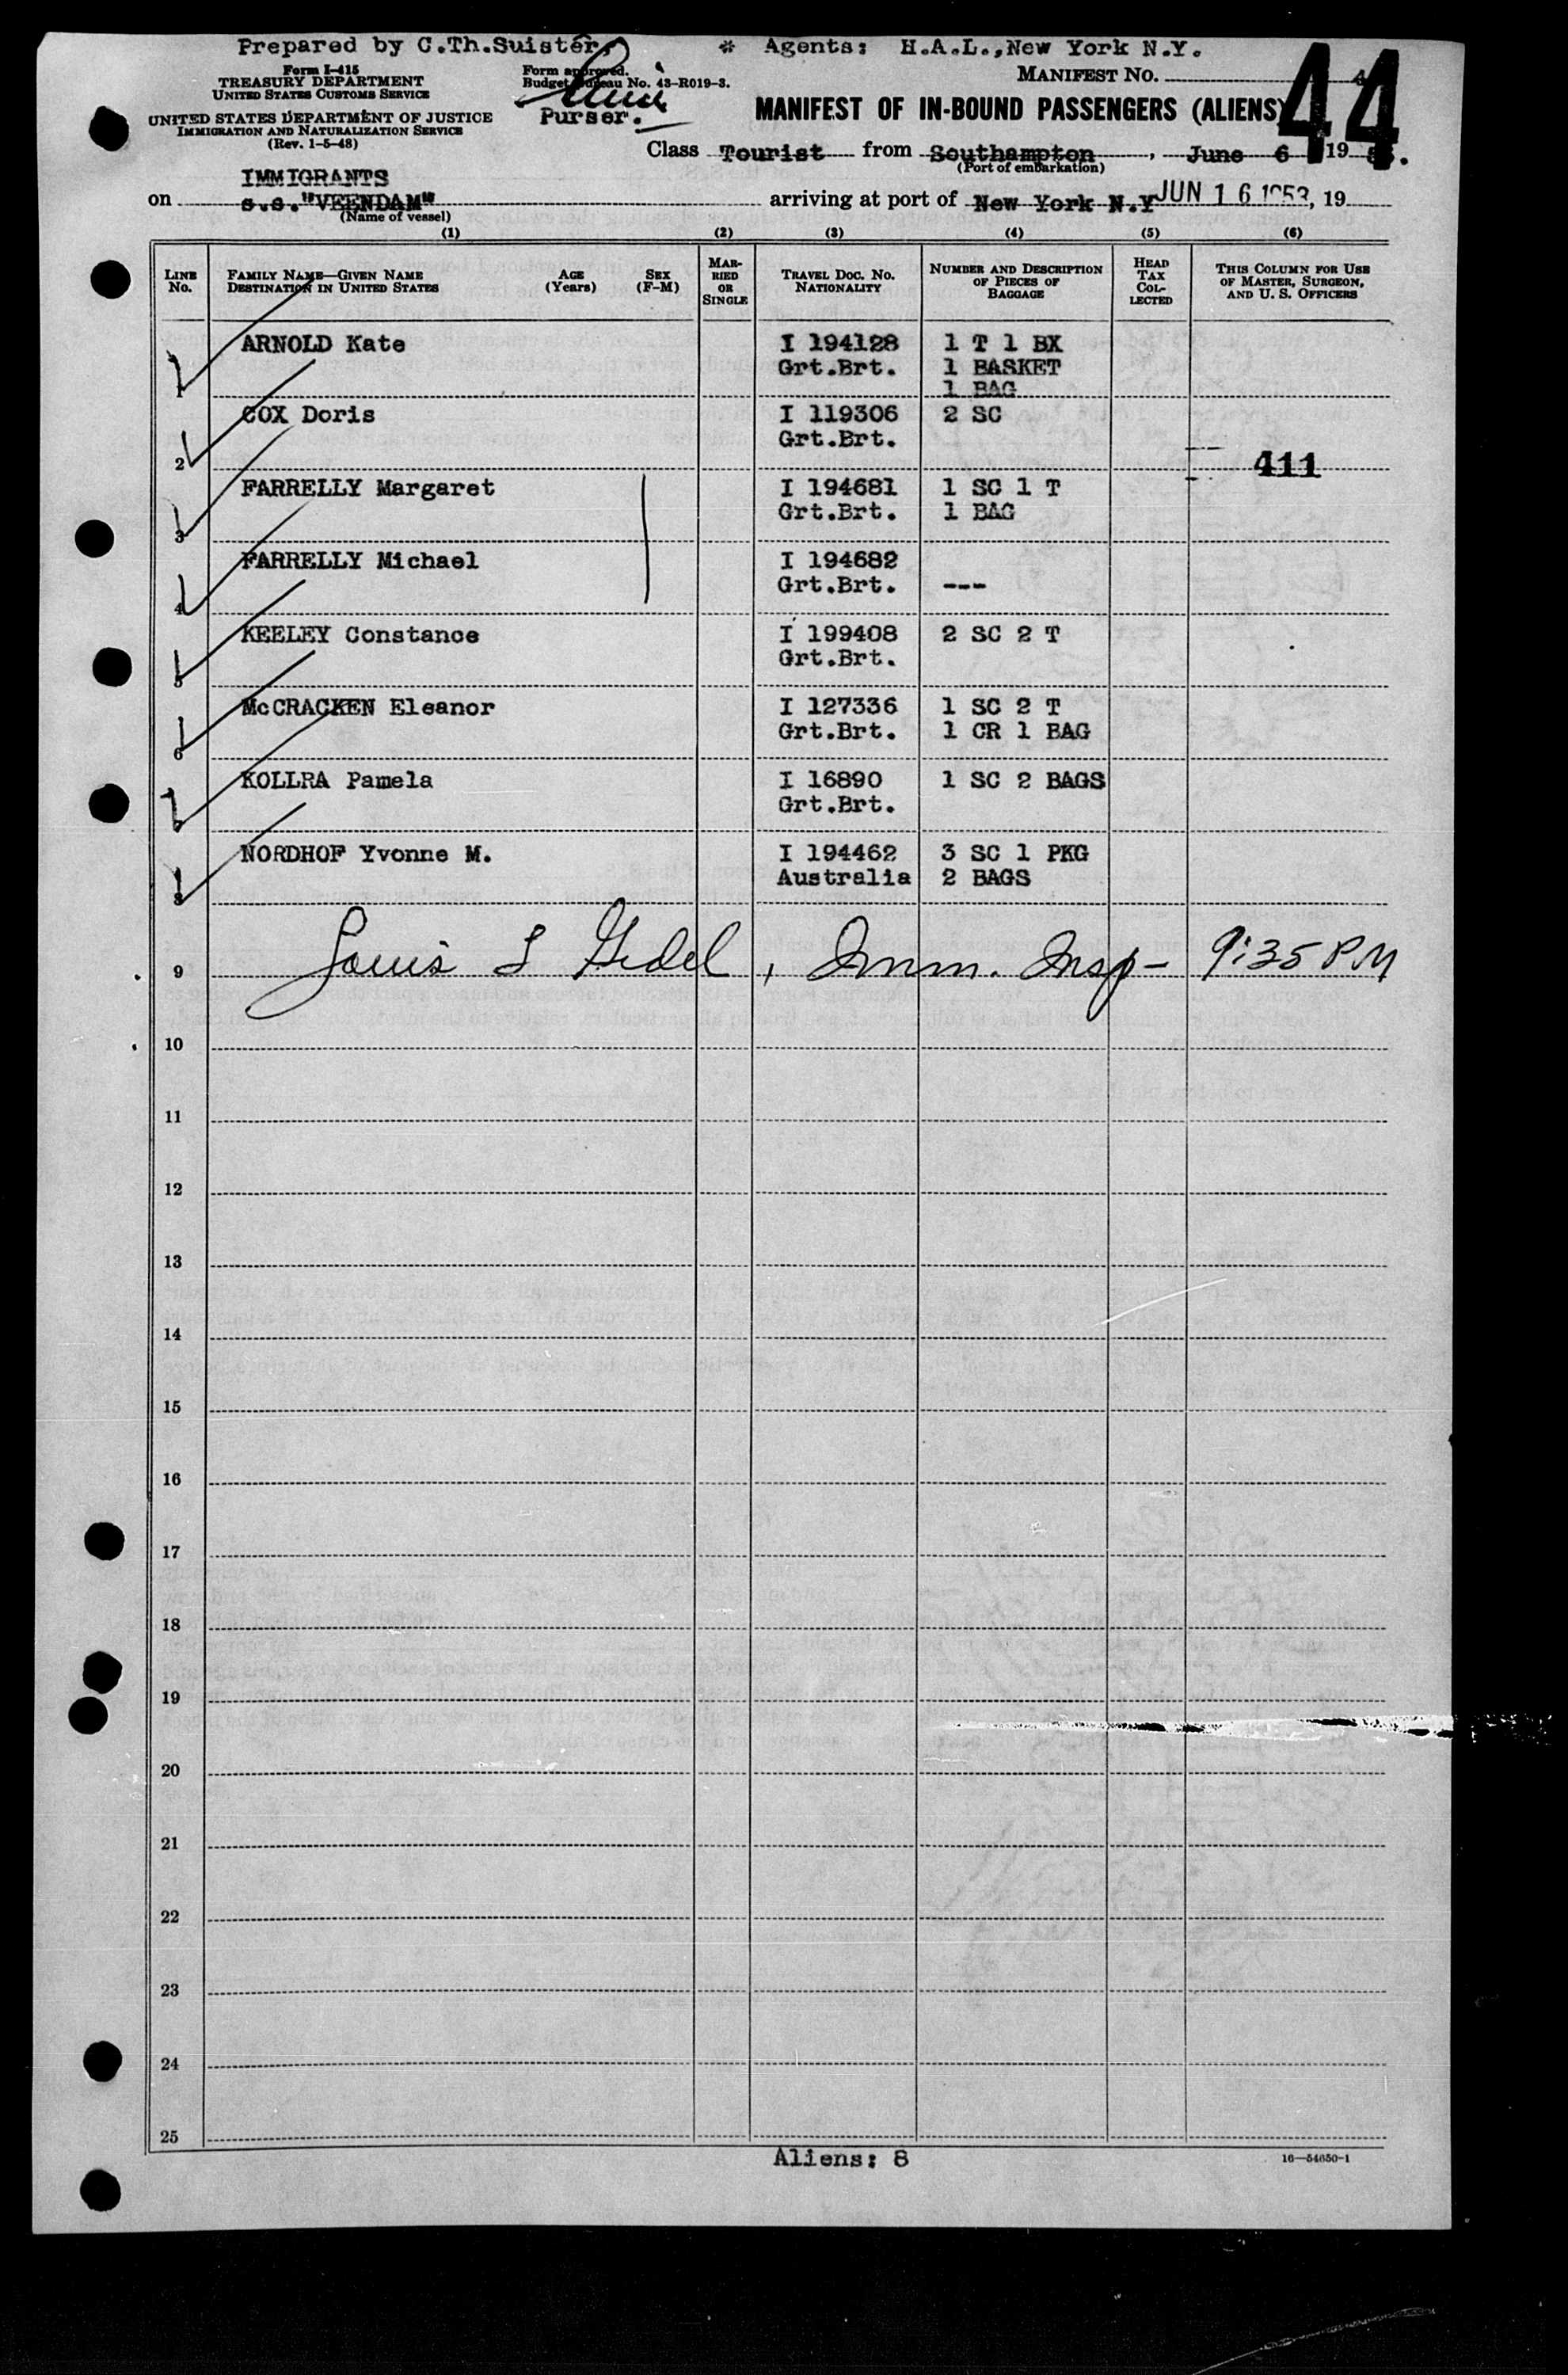 Prepared by C.Th.Suister, * Agents: H.A.L.,New York N.Y.
Form I-415
TREASURY DEPARTMENT
UNITED STATES CUSTOMS SERVICE
UNITED STATES DEPARTMENT OF JUSTICE
IMMIGRATION AND NATURALIZATION SERVICE
(Rev. 1-5-48)
Form approved.
Budget Bureau No. 43-R019-3.
Purser.
MANIFEST NO.
44
MANIFEST OF IN-BOUND PASSENGERS (ALIENS)
Class Tourist from Southampton, June 6 19
(Port of embarkation)
IMMIGRANTS
on s.s."VEENDAM" arriving at port of New York N.Y JUN 16 1953, 19
(Name of vessel)
(1) (2) (3) (4) (5) (6)
LINE No.
FAMILY NAME—GIVEN NAME
DESTINATION IN UNITED STATES
AGE (Years)
SEX (F-M)
MARRIED OR SINGLE
TRAVEL DOC. NO.
NATIONALITY
NUMBER AND DESCRIPTION OF PIECES OF BAGGAGE
HEAD TAX COLLECTED
THIS COLUMN FOR USE OF MASTER, SURGEON, AND U. S. OFFICERS
ARNOLD Kate I 194128 1 T 1 BX
Grt.Brt. 1 BASKET
1 1 BAG
COX Doris I 119306 2 SC
Grt.Brt.
2 411
FARRELLY Margaret I 194681 1 SC 1 T
Grt.Brt. 1 BAG
3
FARRELLY Michael I 194682
Grt.Brt. ---
4
KEELEY Constance I 199408 2 SC 2 T
Grt.Brt.
5
McCRACKEN Eleanor I 127336 1 SC 2 T
Grt.Brt. 1 CR 1 BAG
6
KOLLRA Pamela I 16890 1 SC 2 BAGS
Grt.Brt.
NORDHOF Yvonne M. I 194462 3 SC 1 PKG
Australia 2 BAGS
8
9 Louis S Gedel, Imm. Insp- 9:35 PM
10
11
12
13
14
15
16
17
18
19
20
21
22
23
24
25
Aliens: 8
16—54650-1